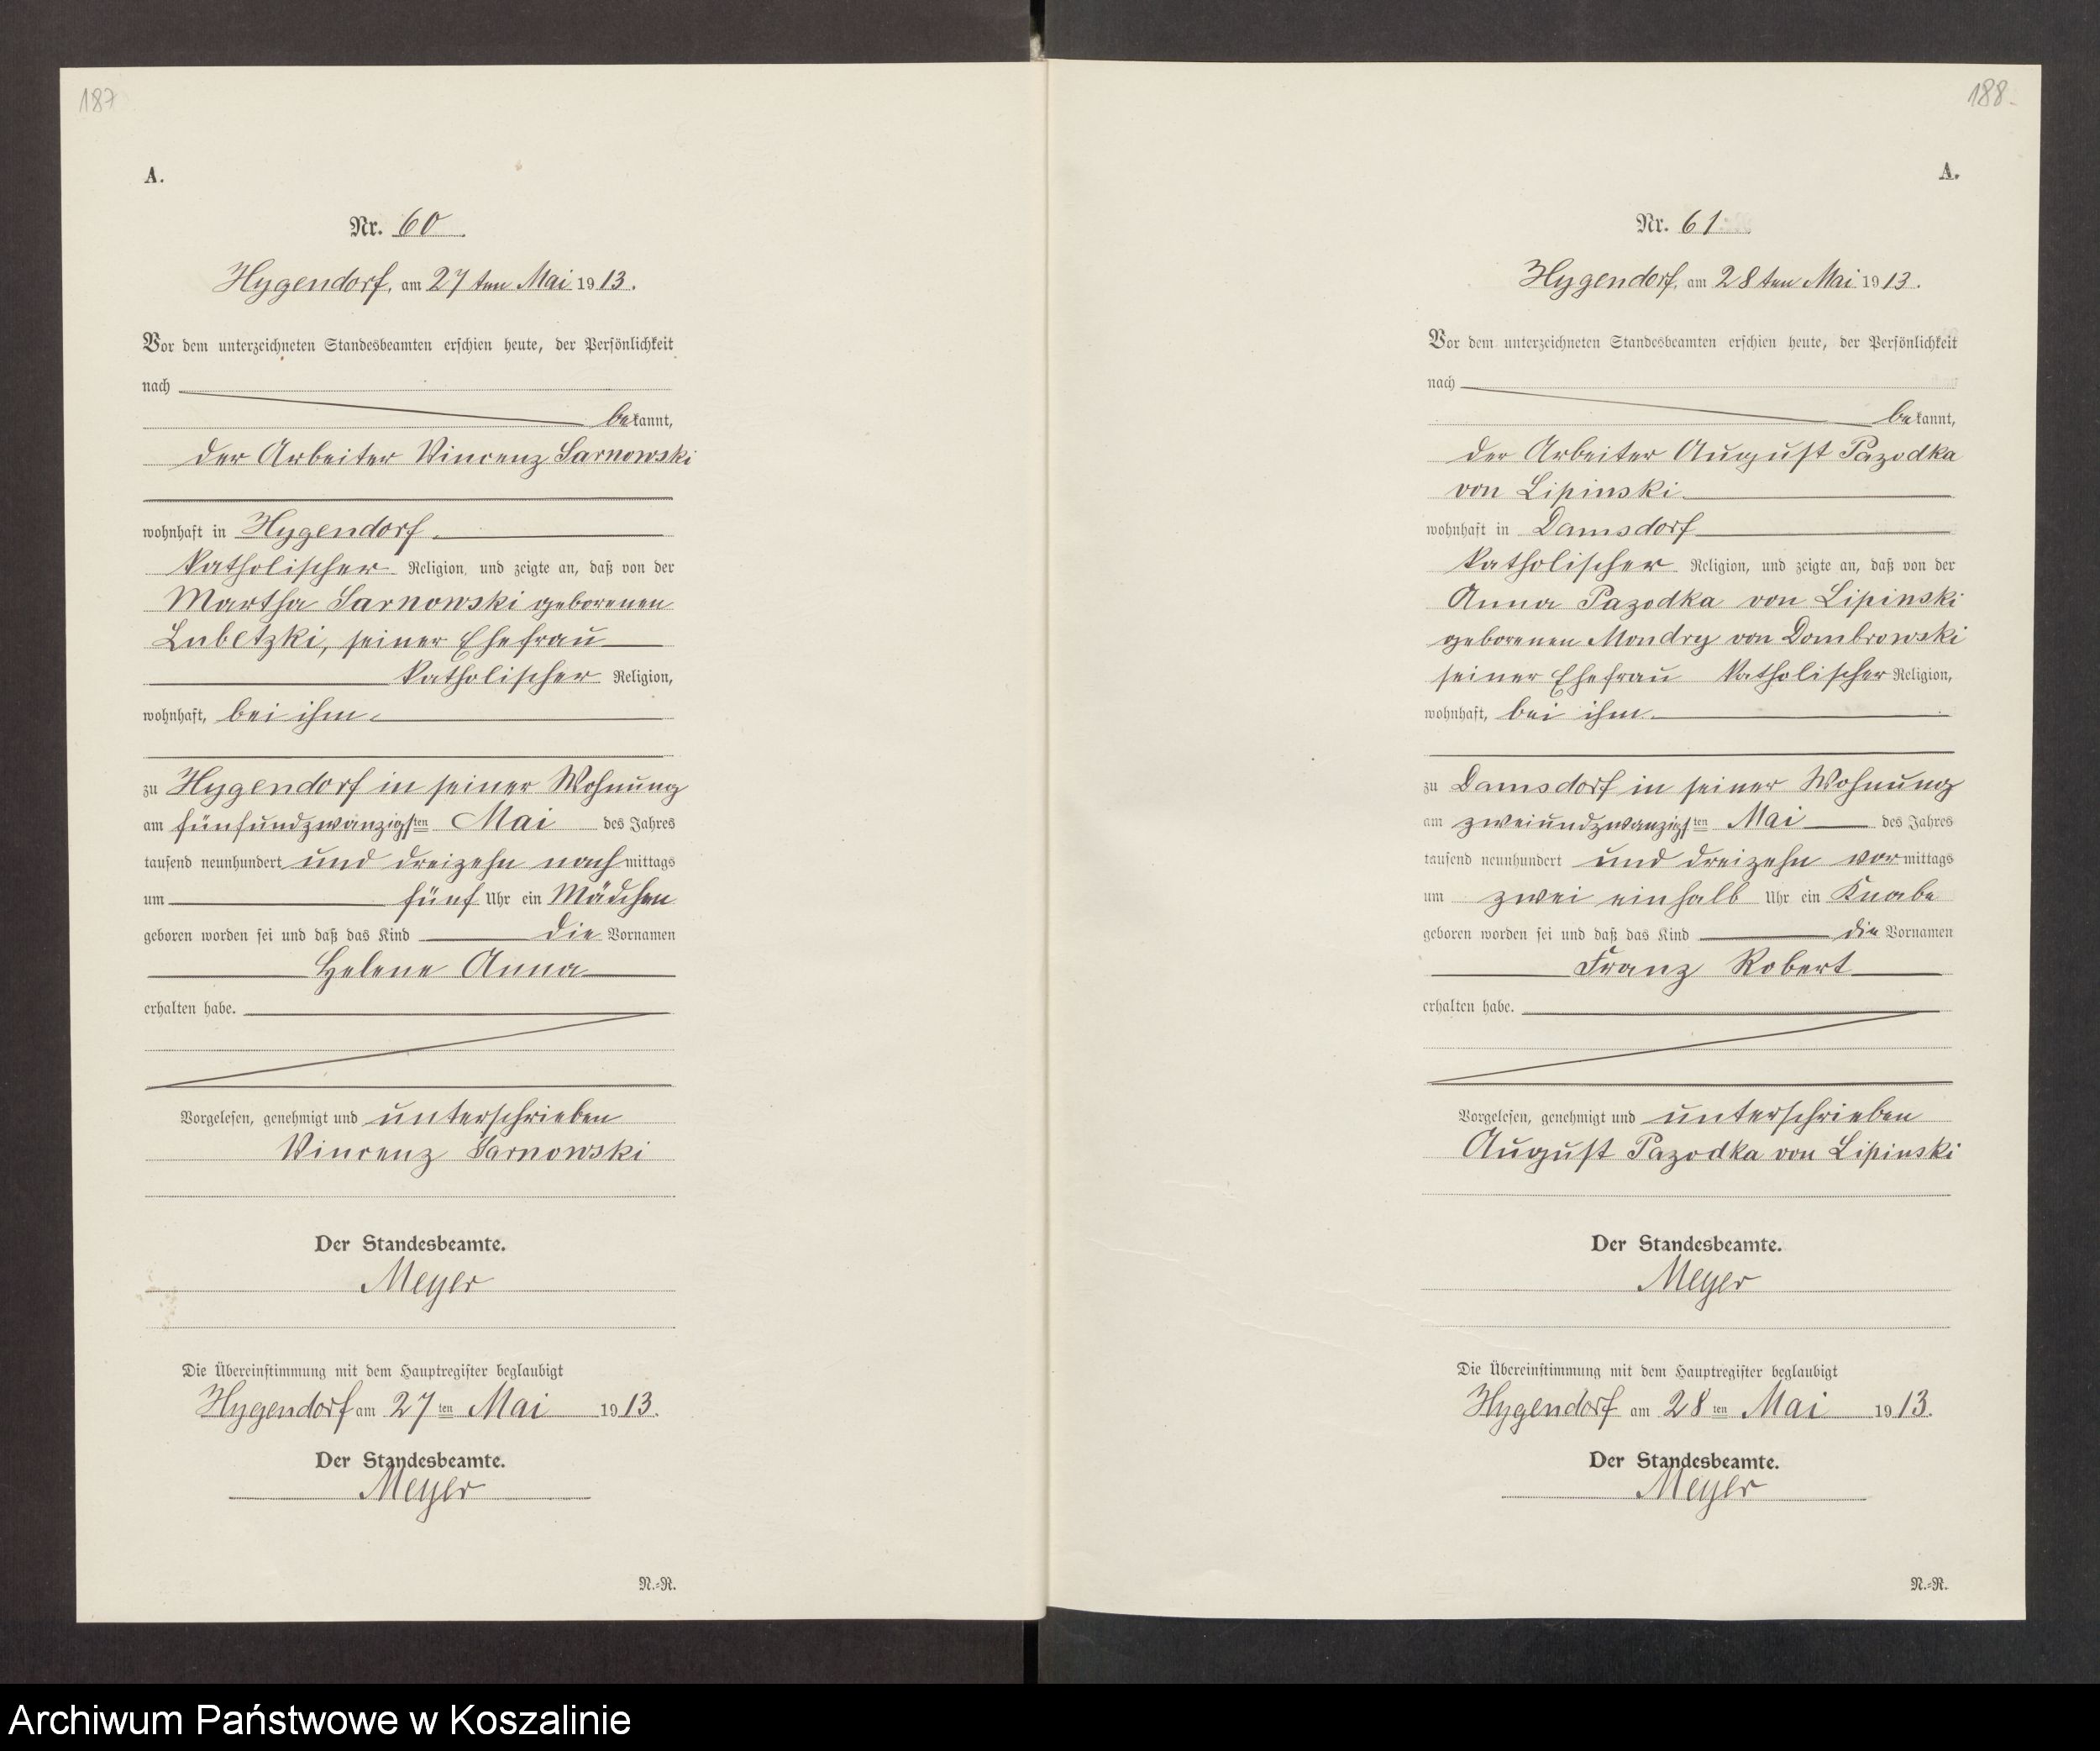 187
A.
Nr. 60
Hygendorf, am 27ten Mai 1913.
Vor dem unterzeichneten Standesbeamten erschien heute, der Persönlichkeit
nach
bekannt,
der Arbeiter Vincenz Sarnowski
wohnhaft in Hygendorf.
katholischer Religion, und zeigte an, daß von der
Martha Sarnowski geborenen
Lubetzki, seiner Ehefrau
katholischer Religion,
wohnhaft, bei ihm
zu Hygendorf in seiner Wohnung
am fünfundzwanzigsten Mai des Jahres
tausend neunhundert und dreizehn nachmittags
um fünf Uhr ein Mädchen
geboren worden sei und daß das Kind die Vornamen
Helene Anna
erhalten habe.
Vorgelesen, genehmigt und unterschrieben
Vincenz Sarnowski
Der Standesbeamte.
Meyer
Die Übereinstimmung mit dem Hauptregister beglaubigt
Hygendorf am 27ten Mai 1913.
Der Standesbeamte.
Meyer
N.=R.
188.
A.
Nr. 61
Hygendorf, am 28ten Mai 1913.
Vor dem unterzeichneten Standesbeamten erschien heute, der Persönlichkeit
nach
bekannt,
der Arbeiter August Pazodka
von Lipinski
wohnhaft in Damsdorf
katholischer Religion, und zeigte an, daß von der
Anna Pazodka von Lipinski
geborenen Mondry von Dombrowski
seiner Ehefrau katholischer Religion,
wohnhaft, bei ihm.
zu Damsdorf in seiner Wohnung
am zweiundzwanzigsten Mai des Jahres
tausend neunhundert und dreizehn vormittags
um zwei einhalb Uhr ein Knabe
geboren worden sei und daß das Kind die Vornamen
Franz Robert
erhalten habe.
Vorgelesen, genehmigt und unterschrieben
August Pazodka von Lipinski
Der Standesbeamte.
Meyer
Die Übereinstimmung mit dem Hauptregister beglaubigt
Hygendorf am 28ten Mai 1913.
Der Standesbeamte.
Meyer
N.=R.
Archiwum Państwowe w Koszalinie